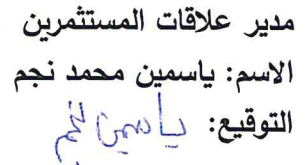 مدير علاقات المستثمرين
الاسم: ياسمين محمد نجم
التوقيع: ياسمين نجم